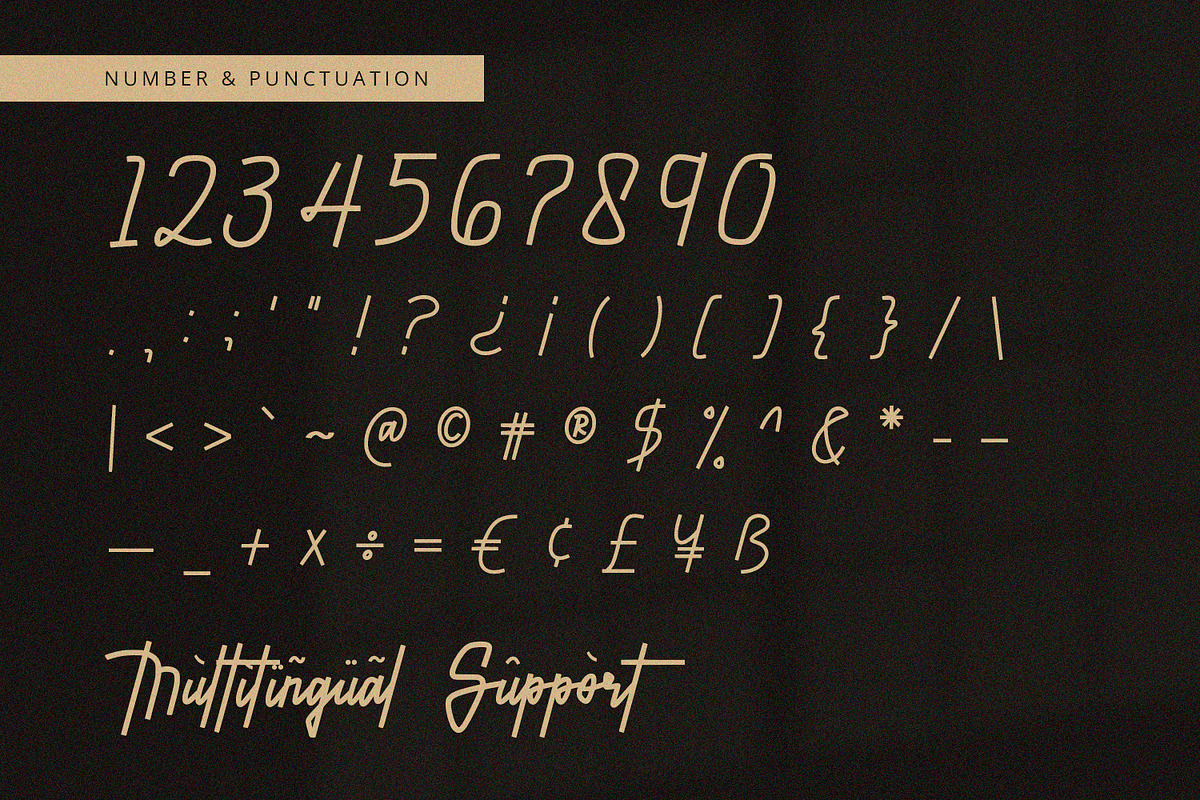 NUMBER & PUNCTUATION
1234567890
. , : ; ' " ! ? ¿ ¡ ( ) [ ] { } / \
| < > ` ~ @ © # ® $ % ^ & * - –
— _ + × ÷ = € ¢ £ ¥ ß
Mùltitïñgüãl Sûppòrt